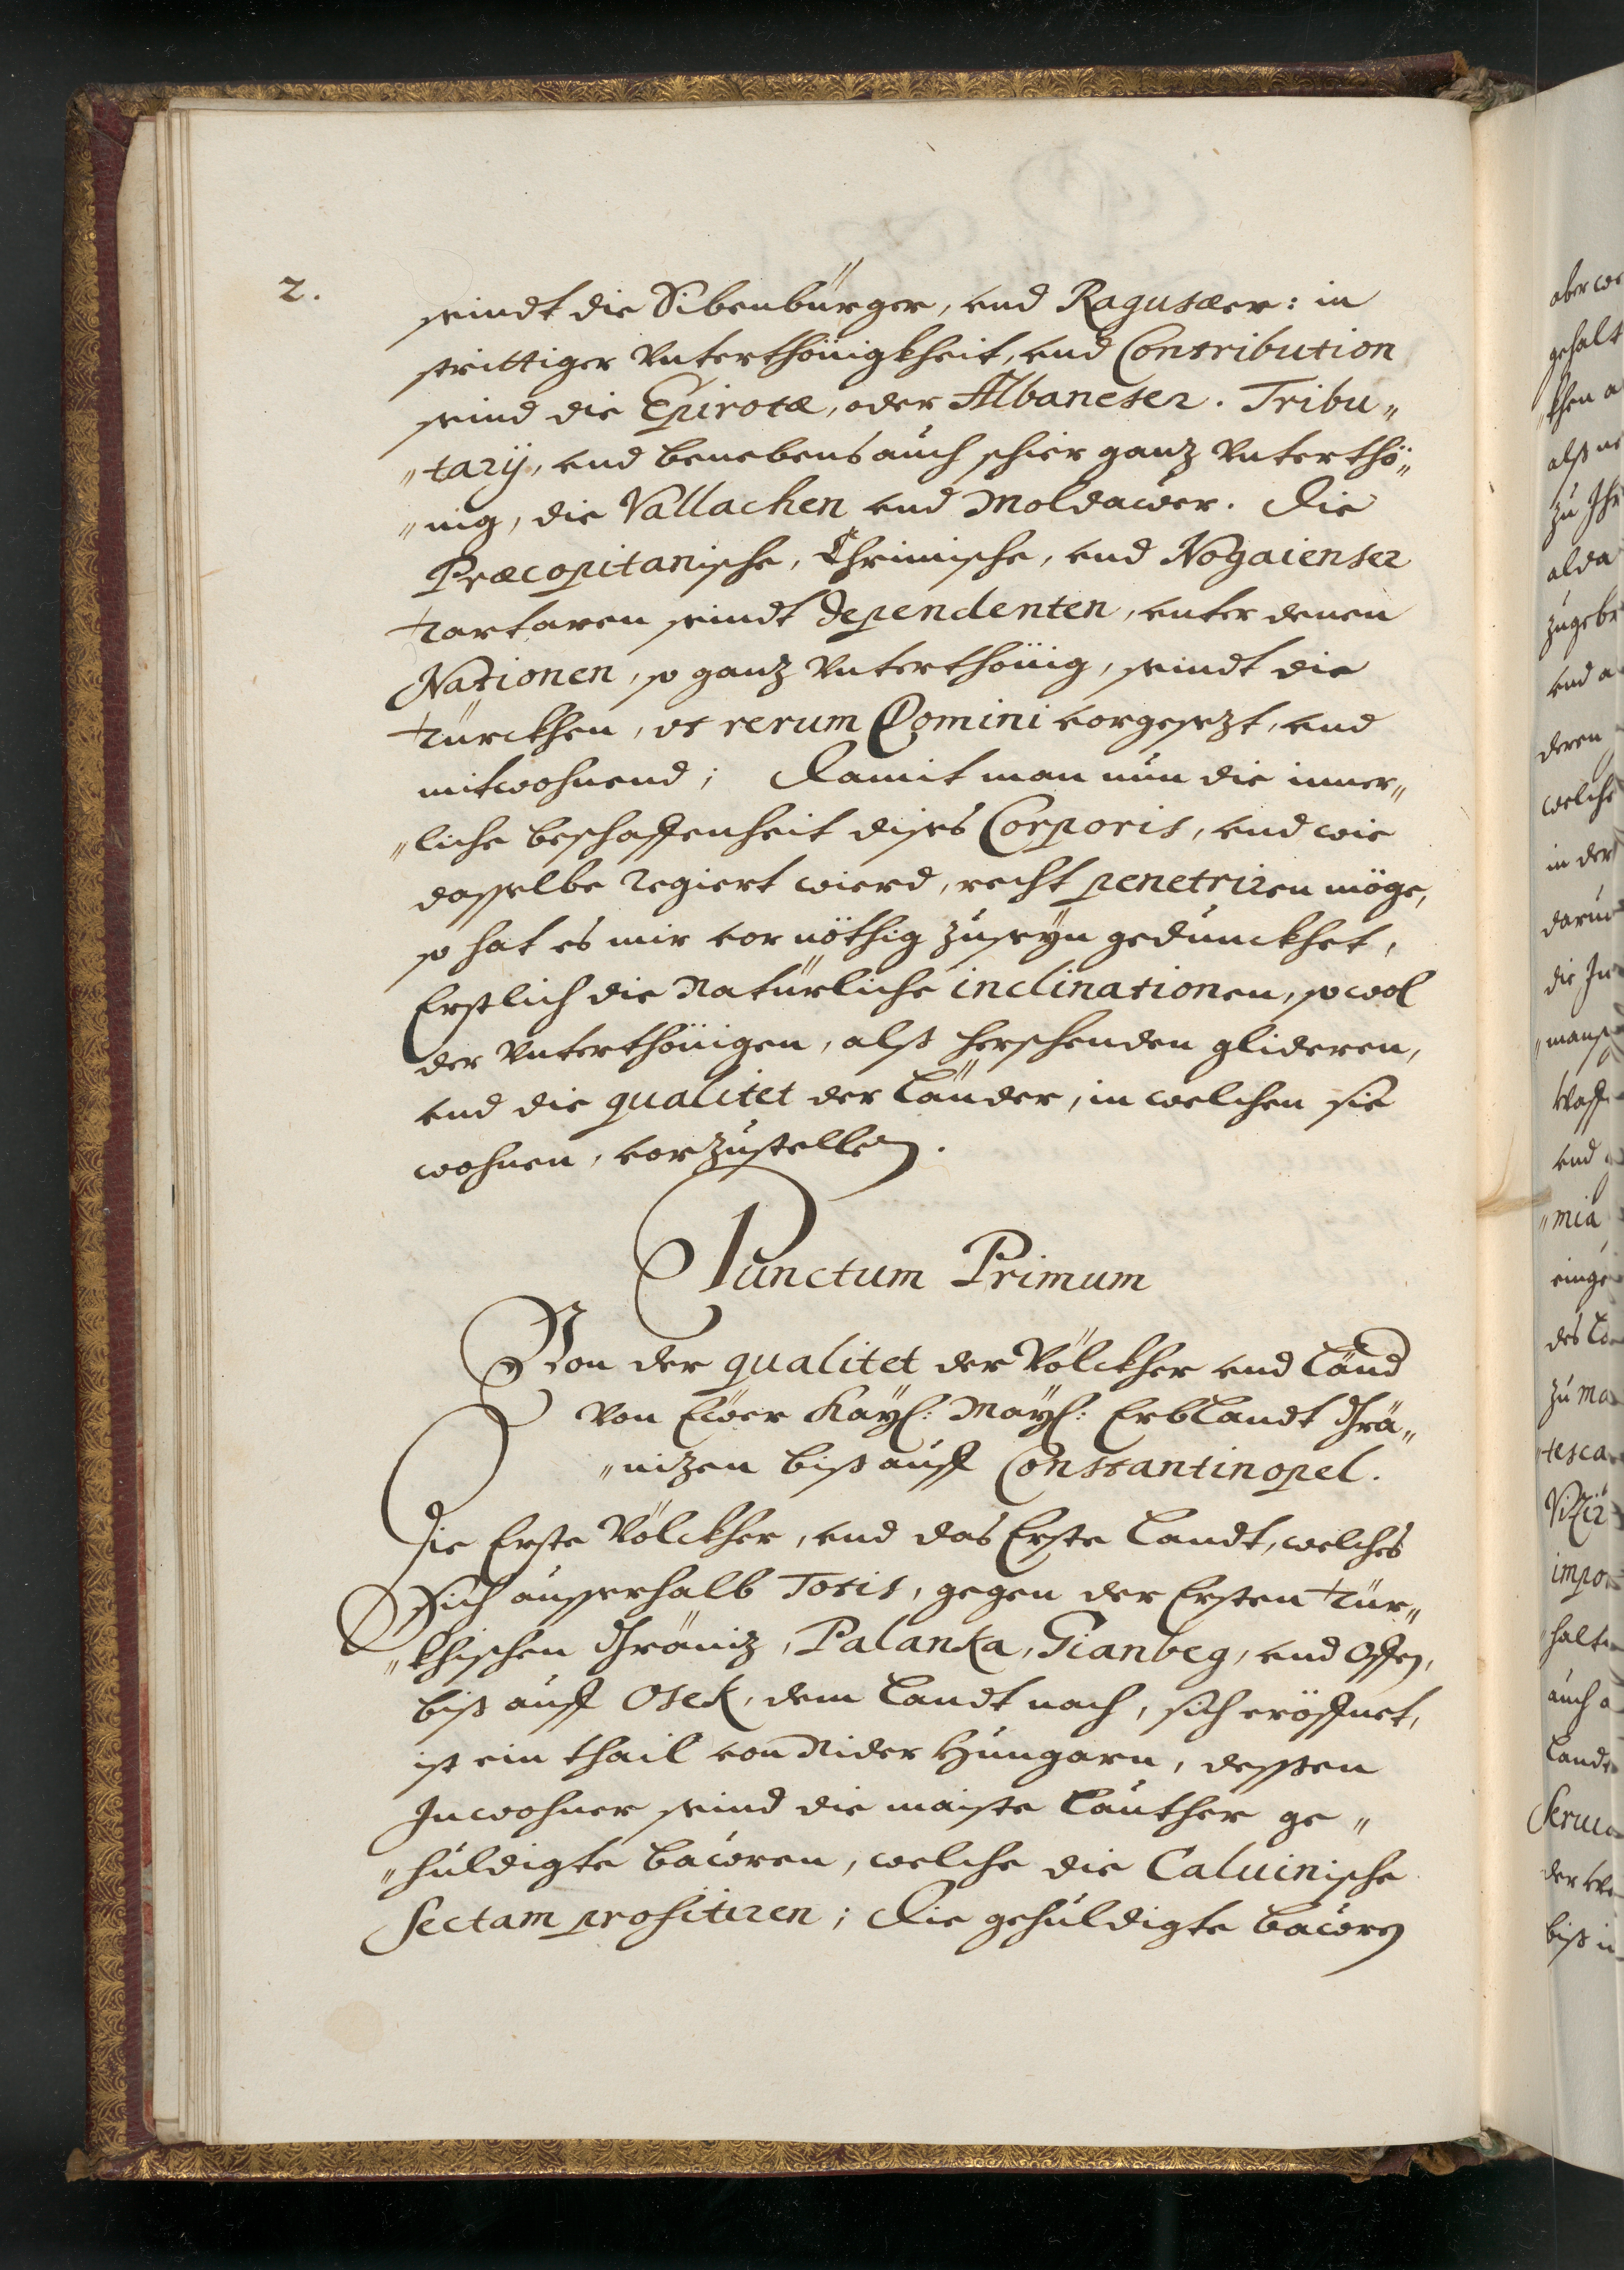 2.
seindt die Sibenbürger, vnd Ragusæer: in
strittiger Vnterthönigkheit, vnd Contribution
seind die Epirotæ, oder Albaneser. Tribu„
„tarÿ, vnd benebens auch schier ganz Vnterthö„
„nig, die Vallachen vnd Moldawer. Die
Præcopitanische, Chrimische, vnd Nogaienser
Tartaren seindt Dependenten, vnter denen
Nationen, so ganz Vnterthönig, seindt die
Türckhen, vt rerum Domini vorgesezt, vnd
mitwohnend; Damit man nun die inner„
„liche beschaffenheit dises Corporis, vnd wie
dasselbe regiert wierd, recht penetriren möge,
so hat es mir vor nöthig zuseÿn gedunckhet,
Erstlich die Natürliche inclinationen, so wol
der Vnterthönigen, alß herschenden glideren,
vnd die qualitet der Länder, in welchen sie
wohnen, vorzustellen.
Punctum Primum
Von der qualitet der Völckher vnd Länd
Von Ewer Kaÿ: Maÿ: Erblandt Grä„
„nizen biß auff Constantinopel.
Die Erste Völckher, vnd das Erste Landt, welches
Sich ausserhalb Totis, gegen der Ersten Tür„
„khischen Gräniz, Palanka, Gianbeg, vnd Offen,
biß auff Osek, dem Landt nach, sich eröffnet,
ist ein thail von Nider Hungarn, dessen
Inwohner seind die maiste Lauther ge„
„huldigte Bawren, welche die Caluinische
Sectam profitiren; Die gehuldigte Bawren
aber
gehalt
„khen
alß
zu Ihr
alda
zugebr
vnd a
deren
welche
in der
darun
die In
„mans
vnd
„mia
einge
des La
zu ma
„tesca
Vizir
impo
halt
auch a
Landt
Serui
der
biß in